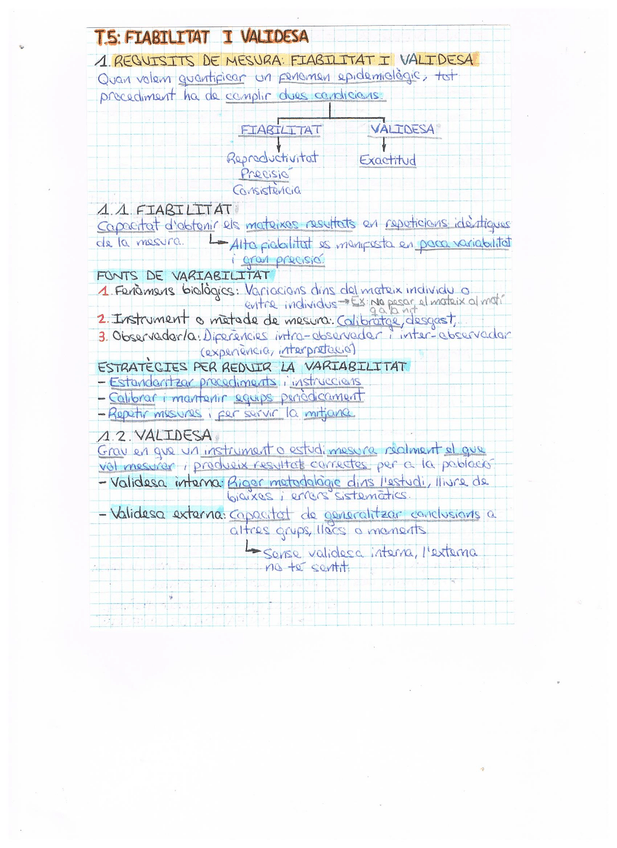 T.5: FIABILITAT I VALIDESA
1. REQUISITS DE MESURA: FIABILITAT I VALIDESA
Quan volem quantificar un fenomen epidemiològic, tot
procediment ha de complir dues condicions:
FIABILITAT VALIDESA
Reproductivitat Exactitud
Precisió
Consistència
1.1. FIABILITAT
Capacitat d'obtenir els mateixos resultats en repeticions idèntiques
de la mesura. Alta fiabilitat es manifesta en poca variabilitat
i gran precisió
FONTS DE VARIABILITAT
1. Fenòmens biològics: Variacions dins del mateix individu o
entre individus → Ex: No pesar el mateix al matí
q a la nit
2. Instrument o mètode de mesura: Calibratge, desgast,
3. Observador/a: Diferències intra-observador i inter-observador
(experiència, interpretació)
ESTRATÈGIES PER REDUIR LA VARIABILITAT
- Estandaritzar procediments i instruccions
- Calibrar i mantenir equips periòdicament
- Repetir mesures i fer servir la mitjana
1.2. VALIDESA
Grau en que un instrument o estudi mesura realment el que
vol mesurar i produeix resultat correctes per a la població
- Validesa interna: Rigor metodològic dins l'estudi, lliure de
biaixos i errors sistemàtics.
- Validesa externa: Capacitat de generalitzar conclusions a
altres grups, llocs o moments
Sense validesa interna, l'externa
no té sentit.